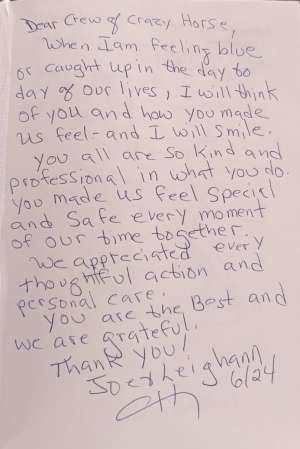 Dear Crew of Crazy Horse,
When I am feeling blue
or caught up in the day to
day of our lives, I will think
of you and how you made
us feel - and I will smile.
You all are so kind and
professional in what you do.
You made us feel special
and safe every moment
of our time together.
We appreciated every
thoughtful action and
personal care.
You are the Best and
we are grateful.
Thank you!
Joe & Leighann
6/24